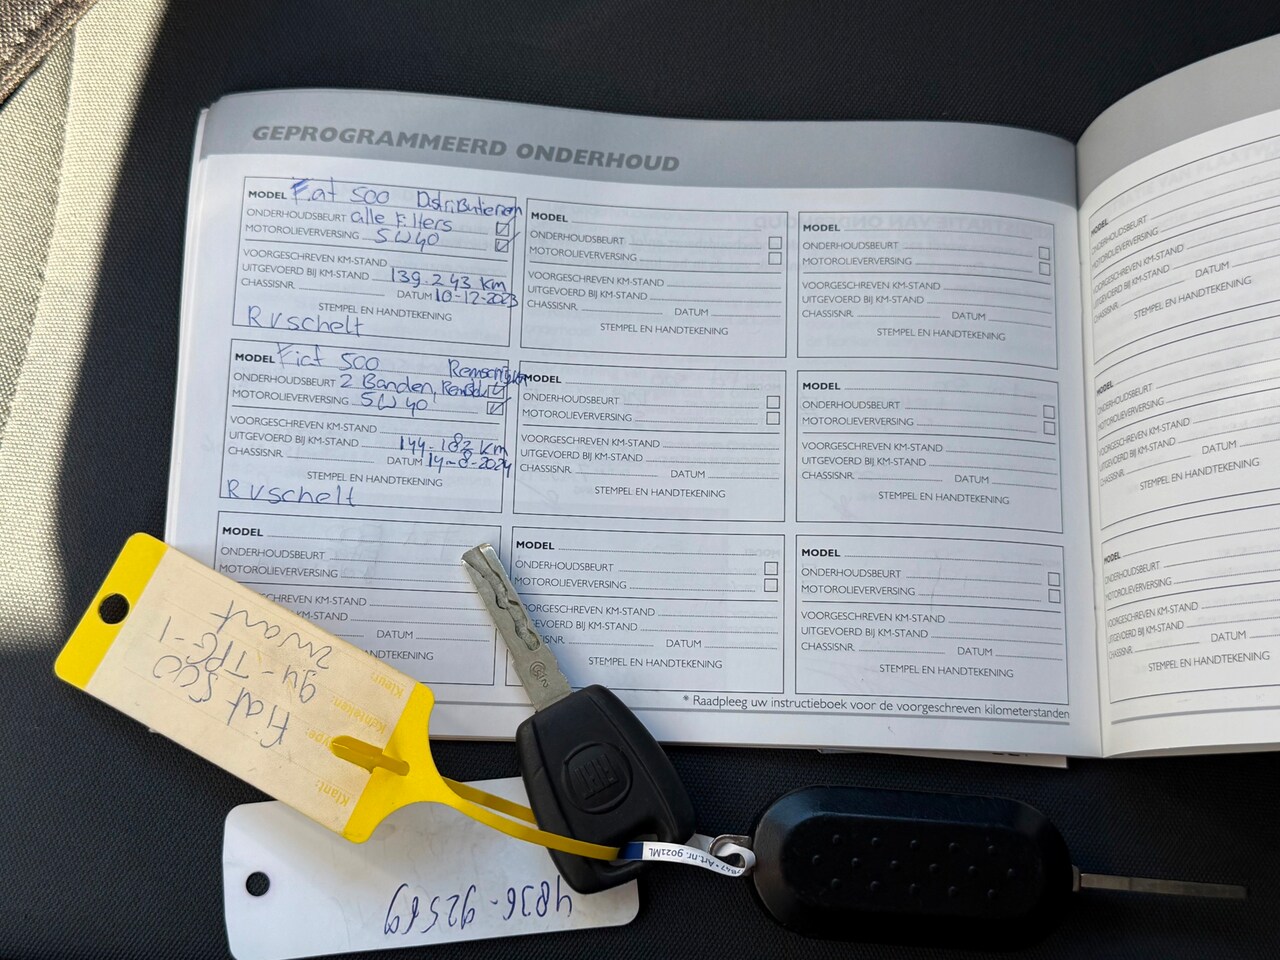 GEPROGRAMMEERD ONDERHOUD
MODEL Fiat 500 Distributieriem
ONDERHOUDSBEURT alle Filters
MOTOROLIEVERVERSING 5W40
VOORGESCHREVEN KM-STAND
UITGEVOERD BIJ KM-STAND 139.243 km
CHASSISNR. DATUM 10-12-2023
STEMPEL EN HANDTEKENING
R Vschelt
MODEL Fiat 500
ONDERHOUDSBEURT 2 Banden,
MOTOROLIEVERVERSING 5W40
VOORGESCHREVEN KM-STAND
UITGEVOERD BIJ KM-STAND 144.182 km
CHASSISNR. DATUM 14-8-2024
STEMPEL EN HANDTEKENING
R Vschelt
MODEL
ONDERHOUDSBEURT
MOTOROLIEVERVERSING
VOORGESCHREVEN KM-STAND
KM-STAND
DATUM
HANDTEKENING
MODEL
ONDERHOUDSBEURT
MOTOROLIEVERVERSING
VOORGESCHREVEN KM-STAND
UITGEVOERD BIJ KM-STAND
CHASSISNR. DATUM
STEMPEL EN HANDTEKENING
MODEL
ONDERHOUDSBEURT
MOTOROLIEVERVERSING
VOORGESCHREVEN KM-STAND
UITGEVOERD BIJ KM-STAND
CHASSISNR. DATUM
STEMPEL EN HANDTEKENING
MODEL
ONDERHOUDSBEURT
MOTOROLIEVERVERSING
VOORGESCHREVEN KM-STAND
BIJ KM-STAND
DATUM
STEMPEL EN HANDTEKENING
MODEL
ONDERHOUDSBEURT
MOTOROLIEVERVERSING
VOORGESCHREVEN KM-STAND
UITGEVOERD BIJ KM-STAND
CHASSISNR. DATUM
STEMPEL EN HANDTEKENING
MODEL
ONDERHOUDSBEURT
MOTOROLIEVERVERSING
VOORGESCHREVEN KM-STAND
UITGEVOERD BIJ KM-STAND
CHASSISNR. DATUM
STEMPEL EN HANDTEKENING
MODEL
ONDERHOUDSBEURT
MOTOROLIEVERVERSING
VOORGESCHREVEN KM-STAND
UITGEVOERD BIJ KM-STAND
CHASSISNR. DATUM
STEMPEL EN HANDTEKENING
* Raadpleeg uw instructieboek voor de voorgeschreven kilometerstanden
MODEL
ONDERHOUDSBEURT
MOTOROLIEVERVERSING
VOORGESCHREVEN KM-STAND
UITGEVOERD BIJ KM-STAND
CHASSISNR. DATUM
STEMPEL EN HANDTEKENING
MODEL
ONDERHOUDSBEURT
MOTOROLIEVERVERSING
VOORGESCHREVEN KM-STAND
UITGEVOERD BIJ KM-STAND
CHASSISNR. DATUM
STEMPEL EN HANDTEKENING
MODEL
ONDERHOUDSBEURT
MOTOROLIEVERVERSING
VOORGESCHREVEN KM-STAND
UITGEVOERD BIJ KM-STAND
CHASSISNR. DATUM
STEMPEL EN HANDTEKENING
Klant:
Type: Fiat 500
Kenteken: 94-TPG-1
Kleur: zwart
FIAT
Art.nr. 9021ML
4836-92569